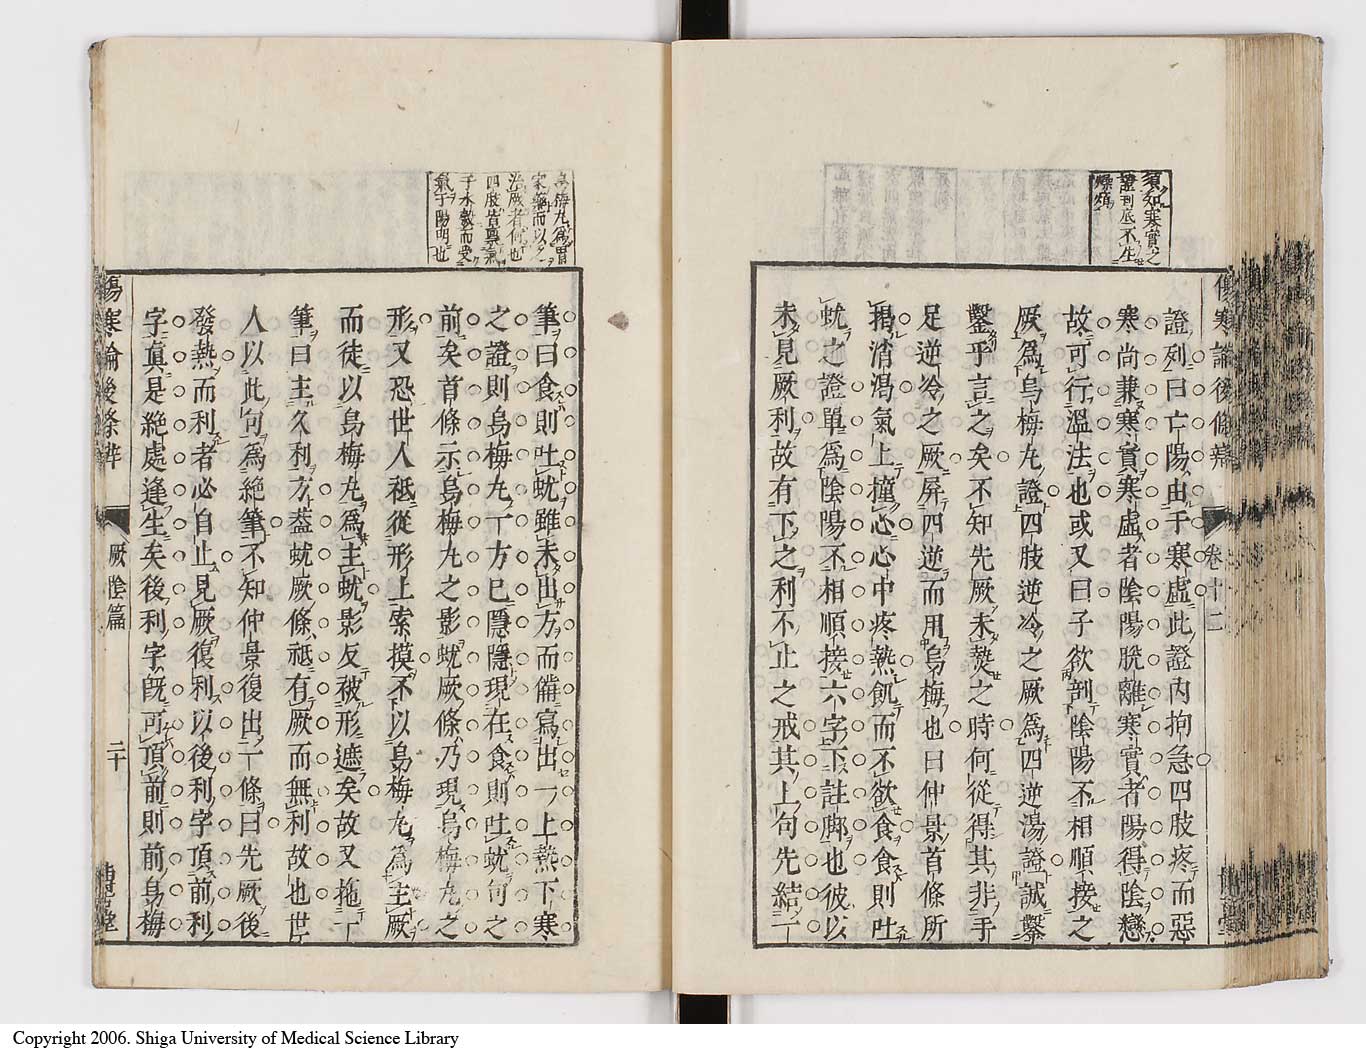 須知寒實之
證列底不生
燥煩
傷寒論後條辯
卷十二
證列曰亡陽由于寒虛此證內拘急四肢疼而惡
寒尚兼寒實寒虛者陰陽脫離寒實者陽得陰戀
故可行溫法也或又曰子欲剖陰陽不相順接之
厥爲烏梅九證四肢逆冷之厥爲四逆湯證誠鑿
鑿乎言之矣不知先厥未獘之時何從得其非手
足逆冷之厥屏四逆而用烏梅也曰仲景首條所
揭消渴氣上撞心心中疼熱飢而不欲食食則吐
蚘之證單爲陰陽不相順接六字下註脚也彼以
未見厥利故有下之利不止之戒其上句先結一
烏梅九爲胃
家藥而以之
治厥者何也
四肢皆稟氣
于水穀而受
氣于陽明也
筆曰食則吐蚘雖未出方而備寫出一上熱下寒
之證則烏梅九一方已隱隱現在食則吐蚘句之
前矣首條示烏梅九之影蚘厥條乃現烏梅九之
形又恐世人祗從形上索摸不以烏梅九爲主厥
而徒以烏梅九爲主蚘影反被形遮矣故又拖一
筆曰主久利方葢蚘厥條祗有厥而無利故也世
人以此句爲絕筆不知仲景復出一條曰先厥後
發熱而利者必自止見厥復利以後利字頂前利
字眞是絕處逢生矣後利字旣可頂前則前烏梅
傷寒論後條辯
厥陰篇
二十